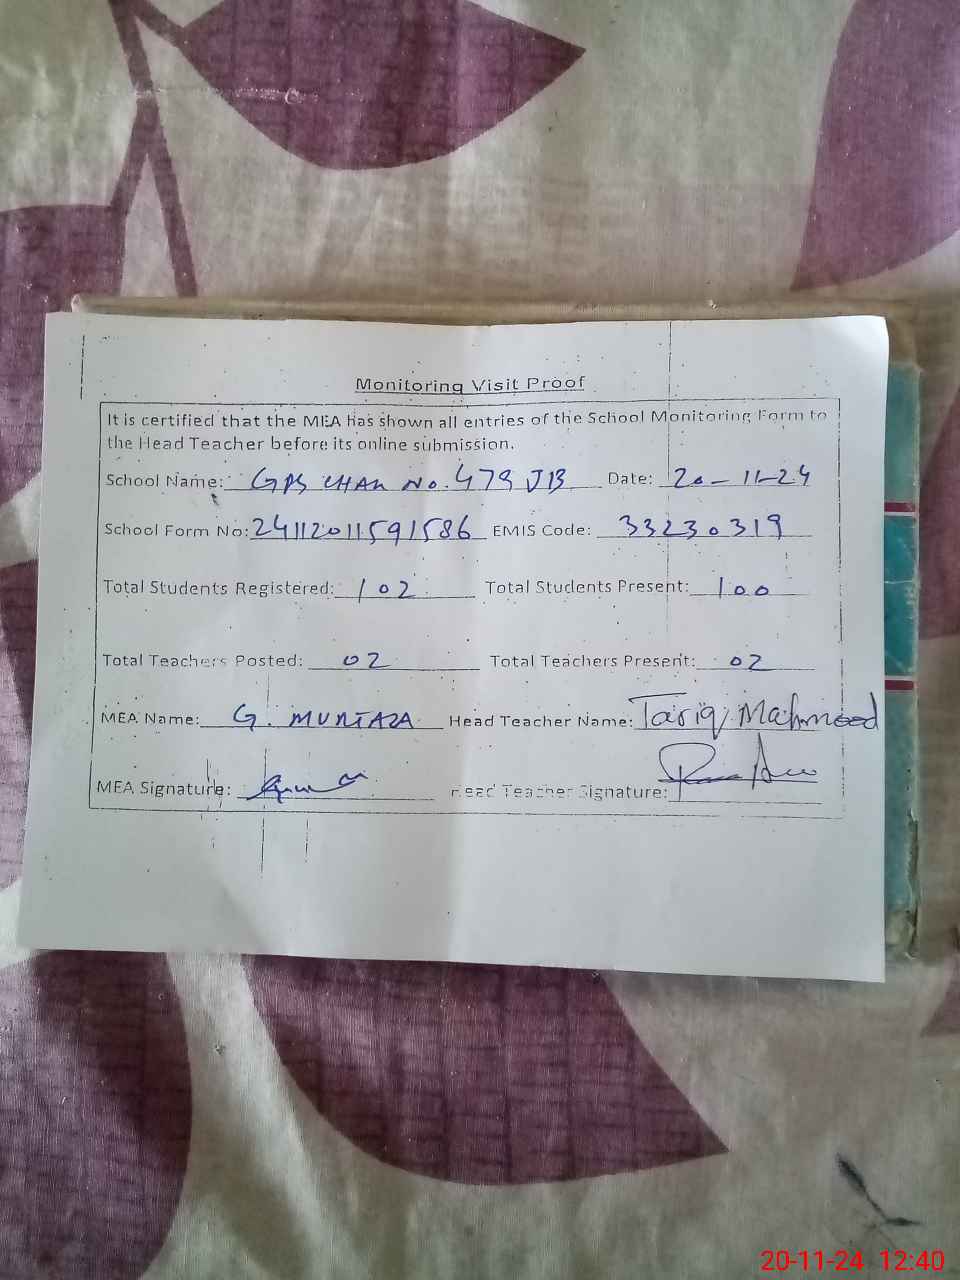 Monitoring Visit Proof
It is certified that the MEA has shown all entries of the School Monitoring Form to
the Head Teacher before its online submission.
School Name: GPS CHAK No. 479 JB Date: 20-11-24
School Form No: 24112011591586 EMIS Code: 33230319
Total Students Registered: 102 Total Students Present: 100
Total Teachers Posted: 02 Total Teachers Present: 02
MEA Name: G. MURTAZA Head Teacher Name: Tariq Mahmood
MEA Signature: Head Teacher Signature:
20-11-24 12:40